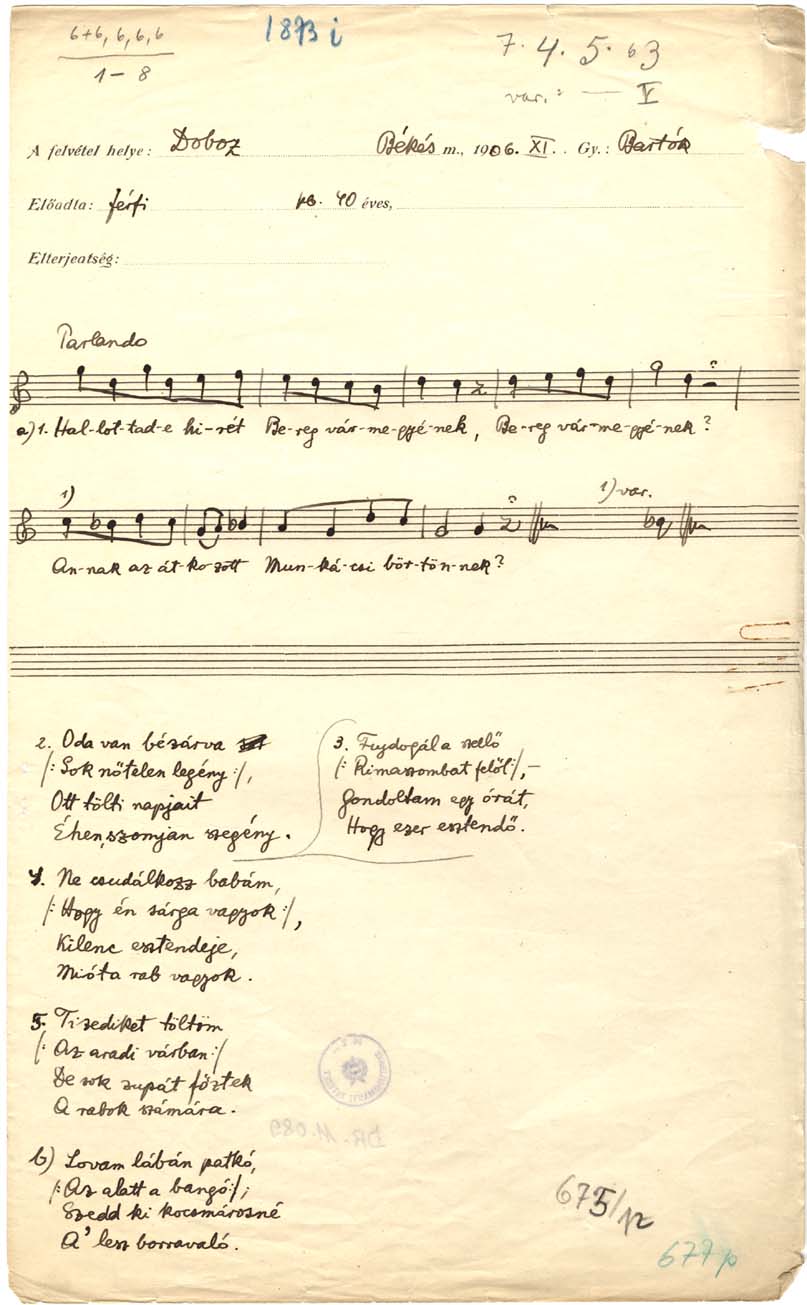 6+6, 6, 6, 6
1-8
1873 i
7. 4. 5. b3
var.: — V
A felvétel helye: Doboz Békés m., 1906. XI. Gy.: Bartók
Előadta: férfi kb. 40 éves,
Elterjeatség:
Parlando
a) 1. Hal-lot-tad-e hi-rét Be-reg vár-me-gyé-nek, Be-reg vár-me-gyé-nek?
1) 1) var.
An-nak az át-ko-zott Mun-ká-csi bör-tön-nek?
2. Oda van bézárva
/: Sok nőtelen legény :/,
Ott tölti napjait
Éhen, szomjan szegény.
3. Fujdogál a szellő
/: Rimaszombat felől :/,-
Gondoltam egy órát,
Hogy ezer esztendő.
4. Ne csudálkozz babám,
/: Hogy én sárga vagyok :/,
Kilenc esztendeje,
Mióta rab vagyok.
5. Tizediket töltöm
/: Az aradi várban :/
De sok zupát főztek
A rabok számára.
DR. 11.089
b) Lovam lábán patkó,
/: Az alatt a bangó :/;
Szedd ki kocsmárosné
A' lesz borravaló.
675/
677 p